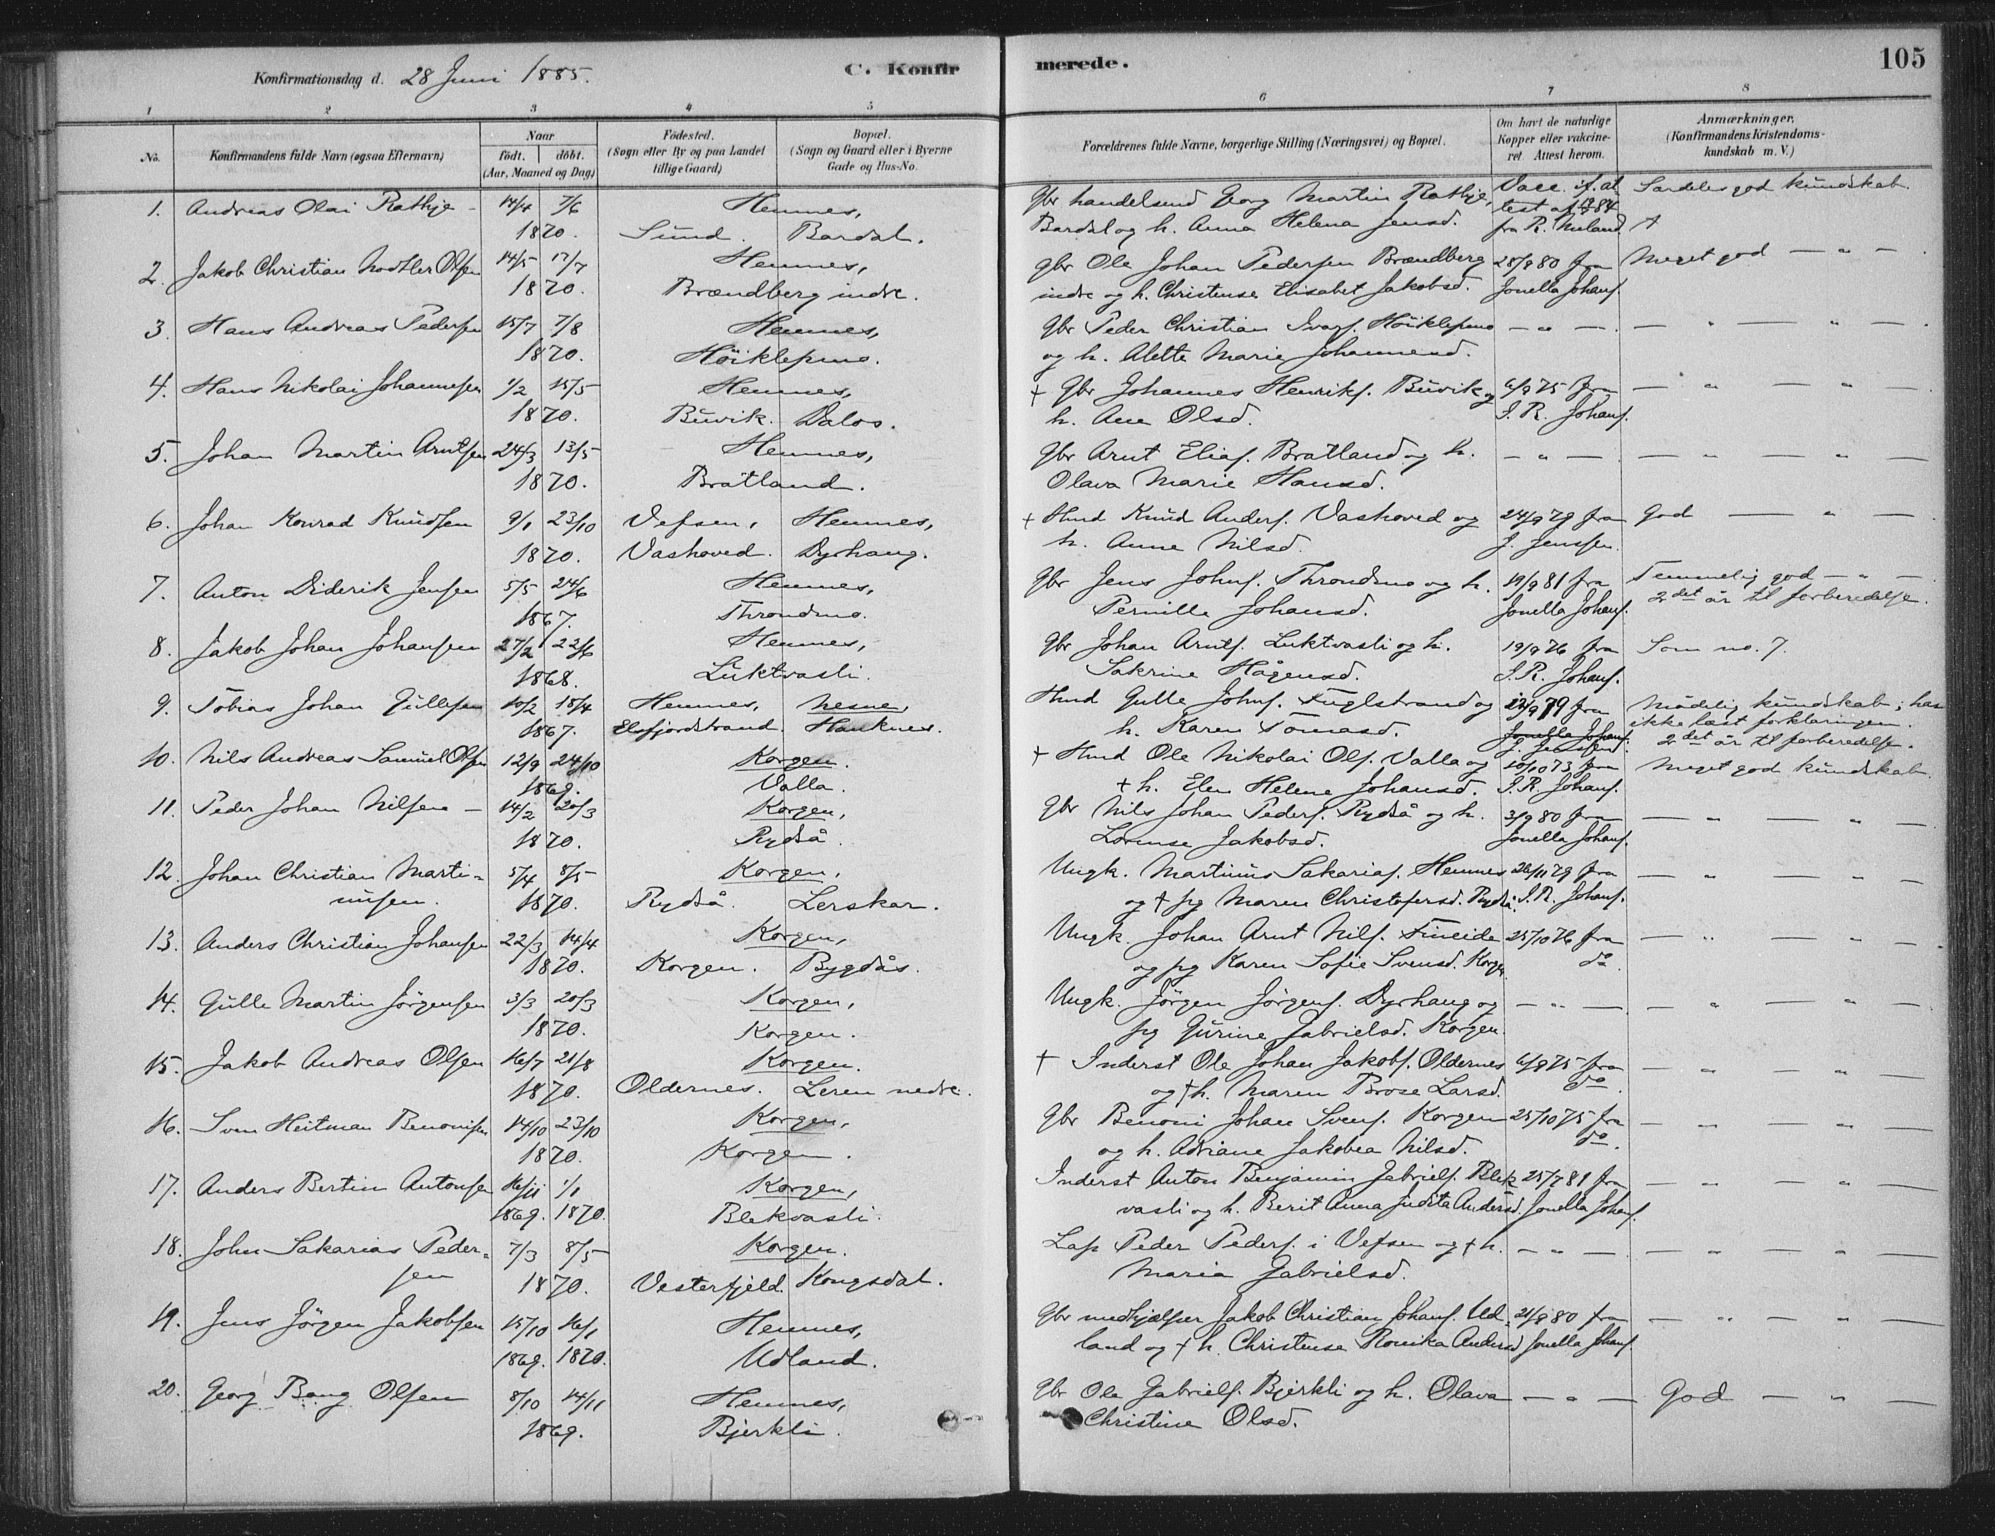 105
Konfirmationsdag d. 28 Juni 1885.
C. Konfirmerede.
1 2 3 4 5 6 7 8
No.
Konfirmandens fulde Navn (ogsaa Efternavn)
Naar
født. døbt.
(Aar, Maaned og Dag)
Fødested.
(Sogn eller By og paa Landet
tillige Gaard)
Bopæl.
(Sogn og Gaard eller i Byerne
Gade og Hus-No.
Forældrenes fulde Navne, borgerlige Stilling (Næringsvei) og Bopæl.
Om havt de naturlige
Kopper eller vakcine-
ret. Attest herom.
Anmærkninger.
(Konfirmandens Kristendoms-
kundskab m. V.)
1. Andreas Olai Rathje - 14/4 7/6 Hemnes, Gbr handelsmd Georg Martin Rathje, Vacc. if. at Særdeles god kundskab.
1870. Sund. Bardal. Bardal og h. Anna Helena Jensd. test af 84
fra R. Meland
2. Jakob Christian Nodtler Olsen 14/5 17/7 Hemnes, Gbr Ole Johan Pedersen Brændberg 28/9 80 fra Meget god — " —
1870. Brændberg indre. indre og h. Christense Elisabet Jakobsd. Jonella Johans.
3 Hans Andreas Pedersen 15/7 7/8 Hemnes, Gbr Peder Christian Ivars. Höiklepmo — " — — " — " —
1870. Höiklepmo. og h. Alette Marie Johannesd.
4. Hans Nikolai Johannesen 1/2 15/5 Hemnes, + Gbr Johannes Henriks. Buvik og 6/9 75 fra — " — " —
1870. Buvik. Dalos. h. Ane Olsd. I. R. Johans.
5. Johan Martin Arntsen 24/3 13/5 Hemnes, Gbr Arnt Elias. Bratland og h. — " — — " — " —
1870. Bratland. Olava Marie Hansd.
6. Johan Konrad Knudsen 9/1 23/10 Vefsen, Hemnes, + Hmd Knud Anders. Vashoved og 24/9 79 fra God — " —
1870. Vashoved. Dyrhaug. h. Anne Nilsd. J. Jenssen.
7. Anton Diderik Jensen 5/5 24/6 Hemnes, Gbr Jens Johns. Throndmo og h. 19/9 81 fra Temmelig god — " —
1867. Throndmo. Pernille Johansd. Jonella Johans. 2det år til forberedelse.
8. Jakob Johan Johansen 27/2 22/6 Hemnes, Gbr Johan Arnts. Luktvasli og h. 19/9 76 fra Som no. 7.
1868. Luktvasli. Sakrine Hågensd. I. R. Johans.
9. Tobias Johan Gullesen 10/2 18/4 Hemnes, Nesne, Hmd Gulle Johns. Fuglstrand og 22/9 79 fra Mådelig kundskab; har
1867. Elsfjordstrand Hauknes. h. Karen Tomasd. Jonella Johans. ikke læst forklaringen.
J. Jenssen. 2det år til forberedelse.
10. Nils Andreas Samuel Olsen 12/9 24/10 Korgen. + Hmd Ole Nikolai Ols. Valla og 10/10 73 fra Meget god kundskab.
1869. Valla. + h. Elen Helene Johansd. I. R. Johans.
11. Peder Johan Nilsen — 14/2 20/3 Korgen, Gbr Nils Johan Peders. Rydså og h. 3/9 80 fra — " — " —
1870. Rydså. Lorense Jakobsd. Jonella Johans.
12. Johan Christian Marti= 5/4 8/5 Korgen, Ungk. Martinus Sakarias. Hemnes 26/11 79 fra — " — " —
nusen. 1870. Rydså. Lerskar. og + pg Maren Christofersd. Rydså. I. R. Johans.
13. Anders Christian Johansen 22/3 14/4 Korgen, Ungk. Johan Arnt Nils. Fineide 25/10 76 fra — " — " —
1870. Korgen. Bygdås. og pg Karen Sofie Svensd. Korgen do.
14. Gulle Martin Jörgensen 3/3 20/3 Korgen, Ungk. Jörgen Jörgens. Dyrhaug og — " — — " — " —
1870. Korgen. pg Gurine Gabrielsd. Korgen
15. Jakob Andreas Olsen 16/7 21/8 Korgen. + Inderst Ole Johan Jakobs. Oldernes 6/9 75 fra — " — " —
1870. Oldernes. Leren nedre. og + h. Maren Brose Larsd. do.
16. Sven Heitman Benonisen 14/10 23/10 Korgen, Gbr Benoni Johan Svens. Korgen 25/10 75 fra — " — " —
1870. Korgen. og h. Adriane Jakobea Nilsd. do.
17. Anders Bertin Antonsen 16/11 1/1 Korgen, Inderst Anton Benjamin Gabriels. Blek 25/7 81 fra — " — " —
1869. 1870. Blekvasli. vasli og h. Berit Anna Judita Andersd. Jonella Johans.
18. John Sakarias Peder= 7/3 8/5 Korgen. Lap Peder Peders. i Vefsen og + h. — " — — " — " —
sen 1870. Vesterfjeld. Kongsdal. Maria Gabrielsd.
19. Jens Jörgen Jakobsen 15/10 16/1 Hemnes, Gbr medhjælper Jakob Christian Johans. Ud 21/9 80 fra — " — " —
1869. 1870. Udland. land og + h. Christense Ronika Andersd Jonella Johans.
20. Georg Bang Olsen 8/10 14/11 Hemnes, Gbr Ole Gabriels. Bjerkli og h. Olava — " — God — " —
1869. Bjerkli. Christine Olsd.